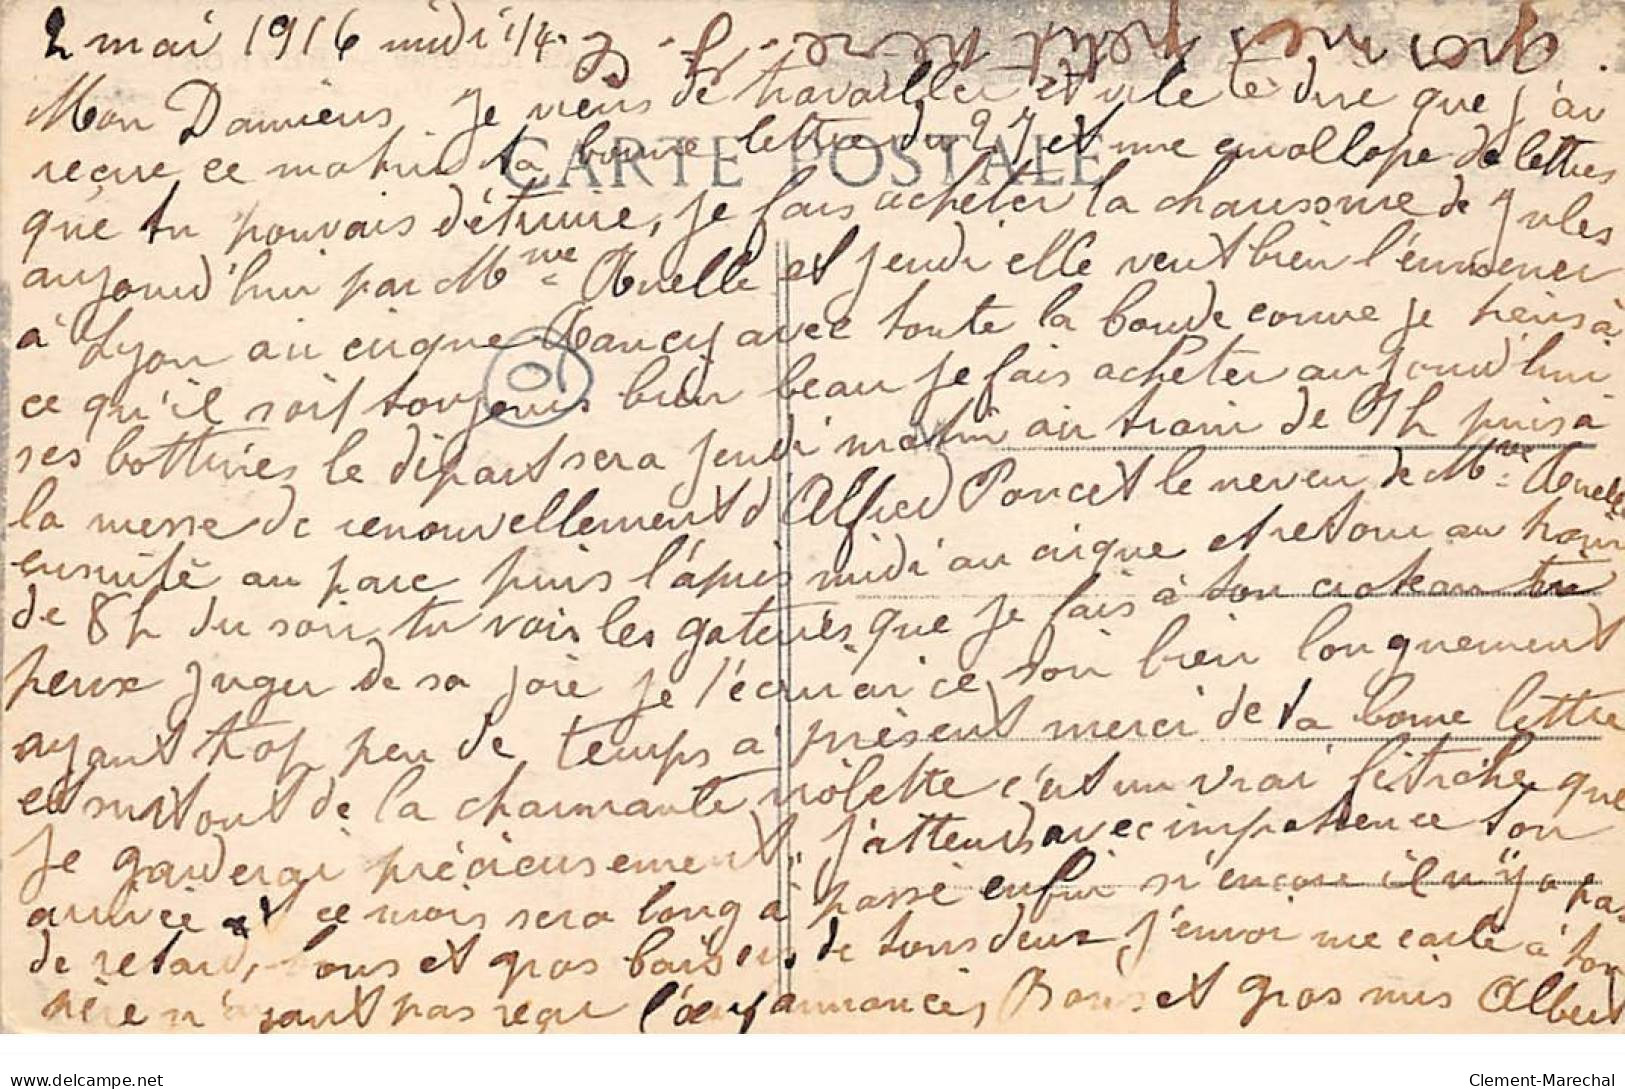 2 mai 1916 midi 1/4
gros mis petit père
Mon Damiens, Je viens de travailler et vite te dire que j'ai
CARTE POSTALE
reçue ce matin ta bonne lettre du 27 et une envollope de lettres
que tu pouvais détruire, je fais acheter la chaussure de Jules
aujourd'hui par Mme Ruelle et jeudi elle veut bien l'emmener
à Lyon au cirque Rancy avec toute la bande comme je tiens à
ce qu'il soit toujours bien beau je fais acheter aujourd'hui
ses bottines le départ sera jeudi matin au train de 9h puis à
la messe de renouvellement d'Alfred Poncet le neveu de Mme Ruelle
ensuite au parc puis l'après midi au cirque et retour au train
de 8h du soir, tu vois les gateries que je fais à ton croteau tu
peux juger de sa joie je t'écrirai ce soir bien longuement
ayant trop peu de temps à présent merci de ta bonne lettre
et surtout de la charmante violette c'est un vrai fétiche que
je garderai précieusement, j'attends avec impatience ton
arrivée et ce mois sera long à passé enfin si encore il n'y a pas
de retard, bons et gros baisers de tous deux, j'envoi une carte à ton
père n'ayant pas reçu l'œuf annoncés, Bons et gros mis Albert
Clement-Marechal
www.delcampe.net